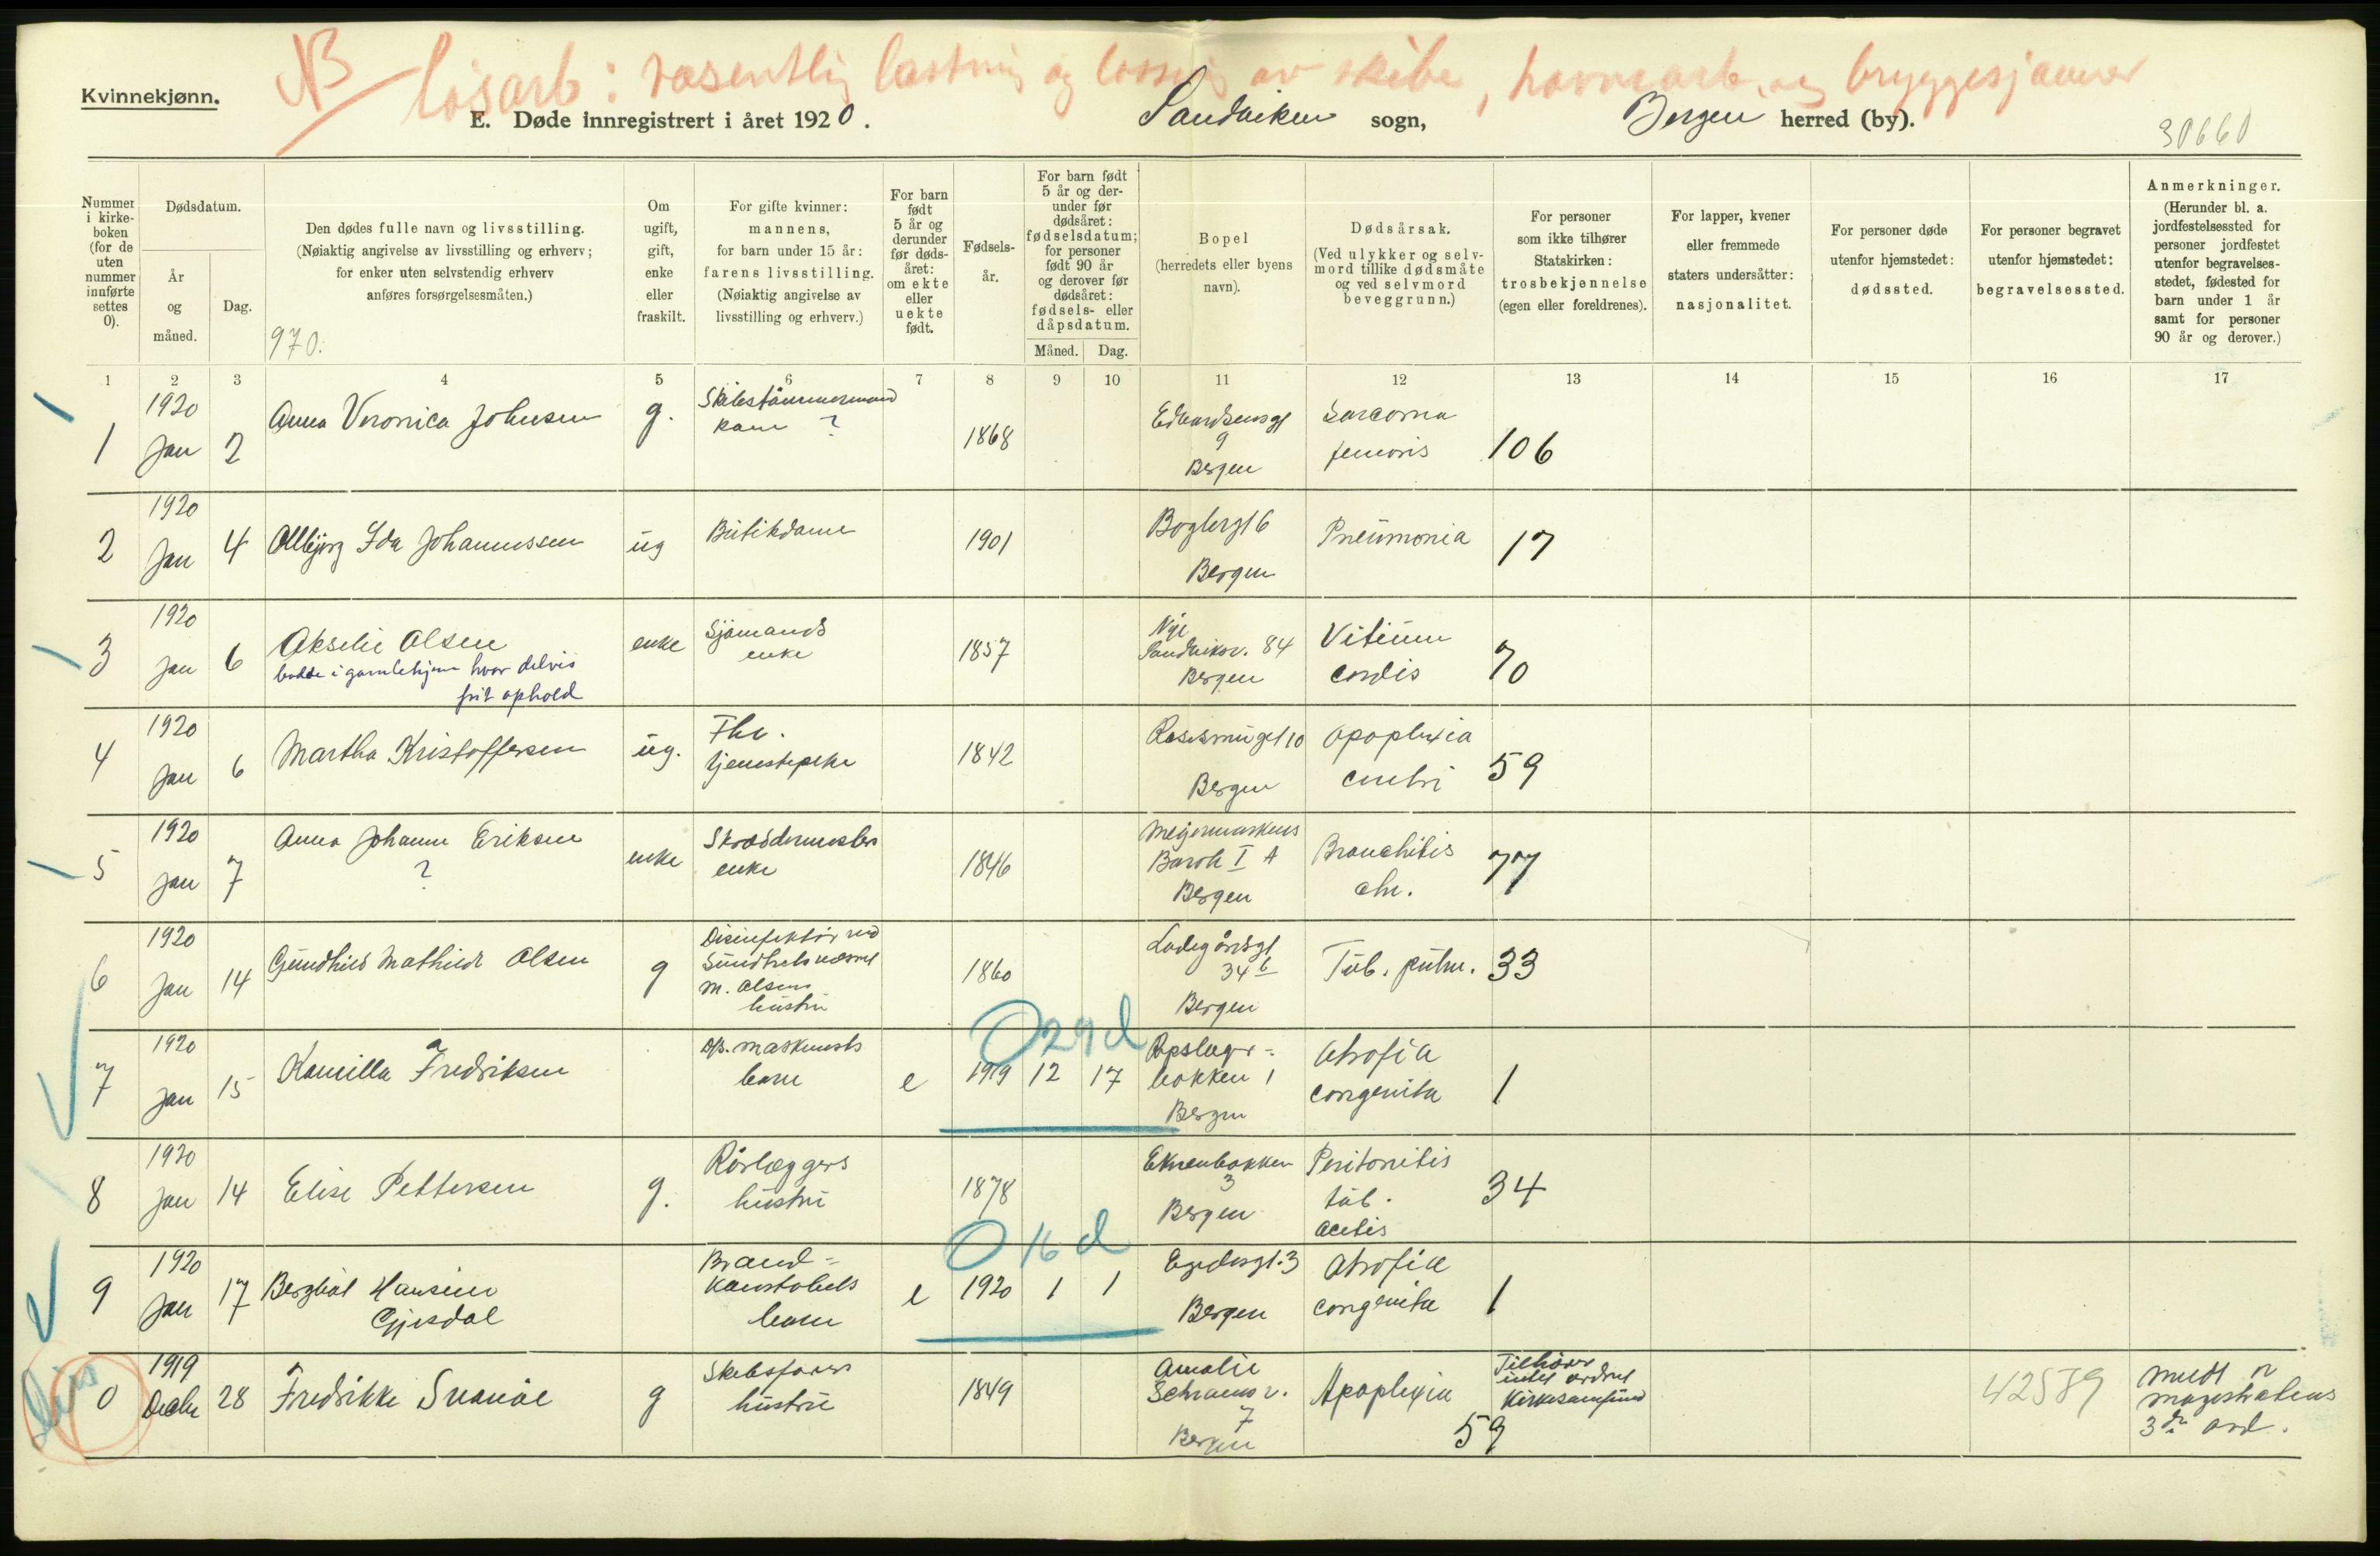 NB
løsarb: væsentlig lastning og lossing av skibe, havnearb. og bryggesjauer
Kvinnekjønn.
E. Døde innregistrert i året 1920.
Sandviken sogn,
Bergen herred (by).
30660
Nummer i kirke-boken (for de uten nummer innførte settes 0).
Dødsdatum.
År og måned.
Dag.
Den dødes fulle navn og livsstilling.
(Nøiaktig angivelse av livsstilling og erhverv;
for enker uten selvstendig erhverv
anføres forsørgelsesmåten.)
970.
Om ugift, gift, enke eller fraskilt.
For gifte kvinner:
mannens,
for barn under 15 år:
farens livsstilling.
(Nøiaktig angivelse av
livsstilling og erhverv.)
For barn født 5 år og derunder før døds-året: om ekte eller uekte født.
Fødsels-år.
For barn født 5 år og der-under før dødsåret: fødselsdatum; for personer født 90 år og derover før dødsåret: fødsels- eller dåpsdatum.
Måned.
Dag.
Bopel
(herredets eller byens
navn).
Dødsårsak.
(Ved ulykker og selv-
mord tillike dødsmåte
og ved selvmord
beveggrunn.)
For personer
som ikke tilhører
Statskirken:
trosbekjennelse
(egen eller foreldrenes).
For lapper, kvener
eller fremmede
staters undersåtter:
nasjonalitet.
For personer døde
utenfor hjemstedet:
dødssted.
For personer begravet
utenfor hjemstedet:
begravelsessted.
Anmerkninger.
(Herunder bl. a.
jordfestelsessted for
personer jordfestet
utenfor begravelses-
stedet, fødested for
barn under 1 år
samt for personer
90 år og derover.)
1 2 3 4 5 6 7 8 9 10 11 12 13 14 15 16 17
1 1920 Jan 2 Anna Veronica Johnsen g. Skibstømmermand kone ? 1868 Edvardsensgt 9 Bergen Sarcoma femoris 106
2 1920 Jan 4 Ollbjørg Ida Johannessen ug Butikdame 1901 Boglergt 6 Bergen Pneumonia 17
3 1920 Jan 6 Akselie Olsen enke Sjømands enke 1857 Nye Sandviksv. 84 Bergen Vitium cordis 70
bodde i gamlehjem hvor delvis
frit ophold
4 1920 Jan 6 Martha Kristoffersen ug. Fhv. tjenestepike 1842 Rosesmuget 10 Bergen Apoplexia cerebri 59
5 1920 Jan 7 Anna Johanne Eriksen ? enke Skræddermesters enke 1846 Meyermarkens Barak I A Bergen Bronchitis chr. 77
6 1920 Jan 14 Gundhild Mathilde Olsen g Disinfektør ved Sundhetsvæsnet M. Olsens hustru 1860 Ladegårdsgt 34 b Bergen Tub. pulm. 33
0 29 d
7 1920 Jan 15 Kamilla Fredriksen maskinists barn e 1919 12 17 Repslager-bakken 1 Bergen Atrofia congenita 1
8 1920 Jan 14 Elise Pettersen g. Rørlæggers hustru 1878 Eknenbakken 3 Bergen Peritonitis tub. 34
0 16 d
9 1920 Jan 17 Bergliot Hansine Gjesdal Brand-konstabels barn e 1920 1 1 Egedesgt. 3 Bergen Atrofia congenita 1
0 1919 Decbr 28 Fredrikke Svanøe g Skibsførers hustru 1849 Amalie Schramsv. 7 Bergen Apoplexia 59 Tilhører intet ordnet Kirkesamfund 42589 meldt magistratens 3die avd.